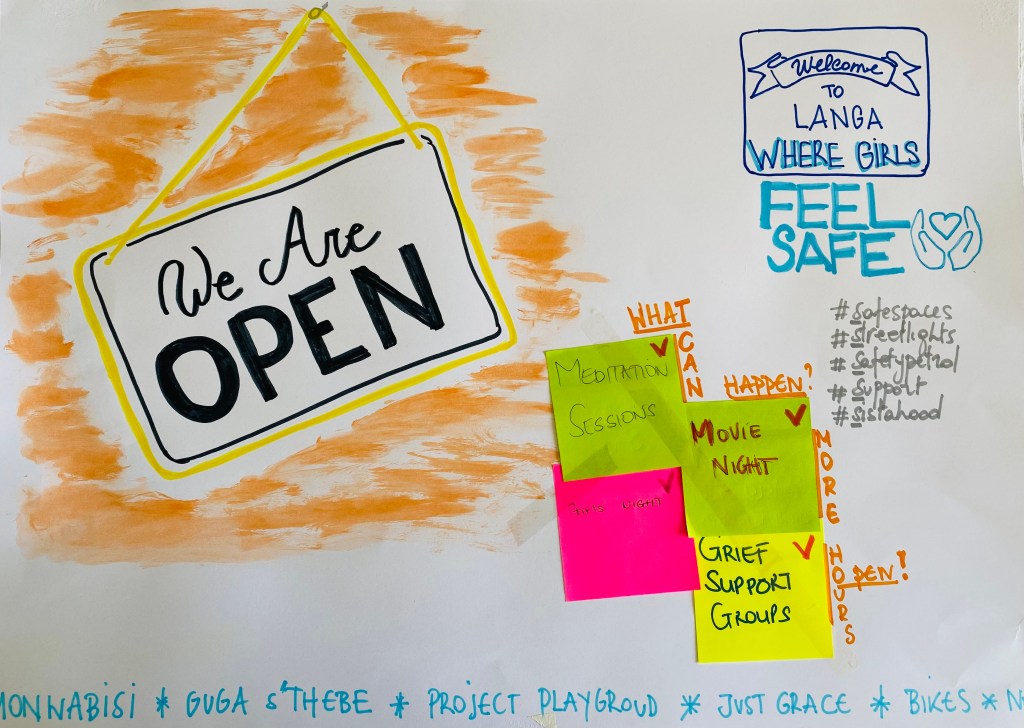 We Are
OPEN
Welcome
TO
LANGA
WHERE GIRLS
FEEL
SAFE
#safespaces
#streetlights
#safetypetrol
#support
#sistahood
WHAT
CAN
HAPPEN?
MORE
HOURS
OPEN!
MEDITATION
SESSIONS
MOVIE
NIGHT
GIRLS NIGHT
GRIEF
SUPPORT
GROUPS
MONWABISI * GUGA S'THEBE * PROJECT PLAYGROUD * JUST GRACE * BIKES * N